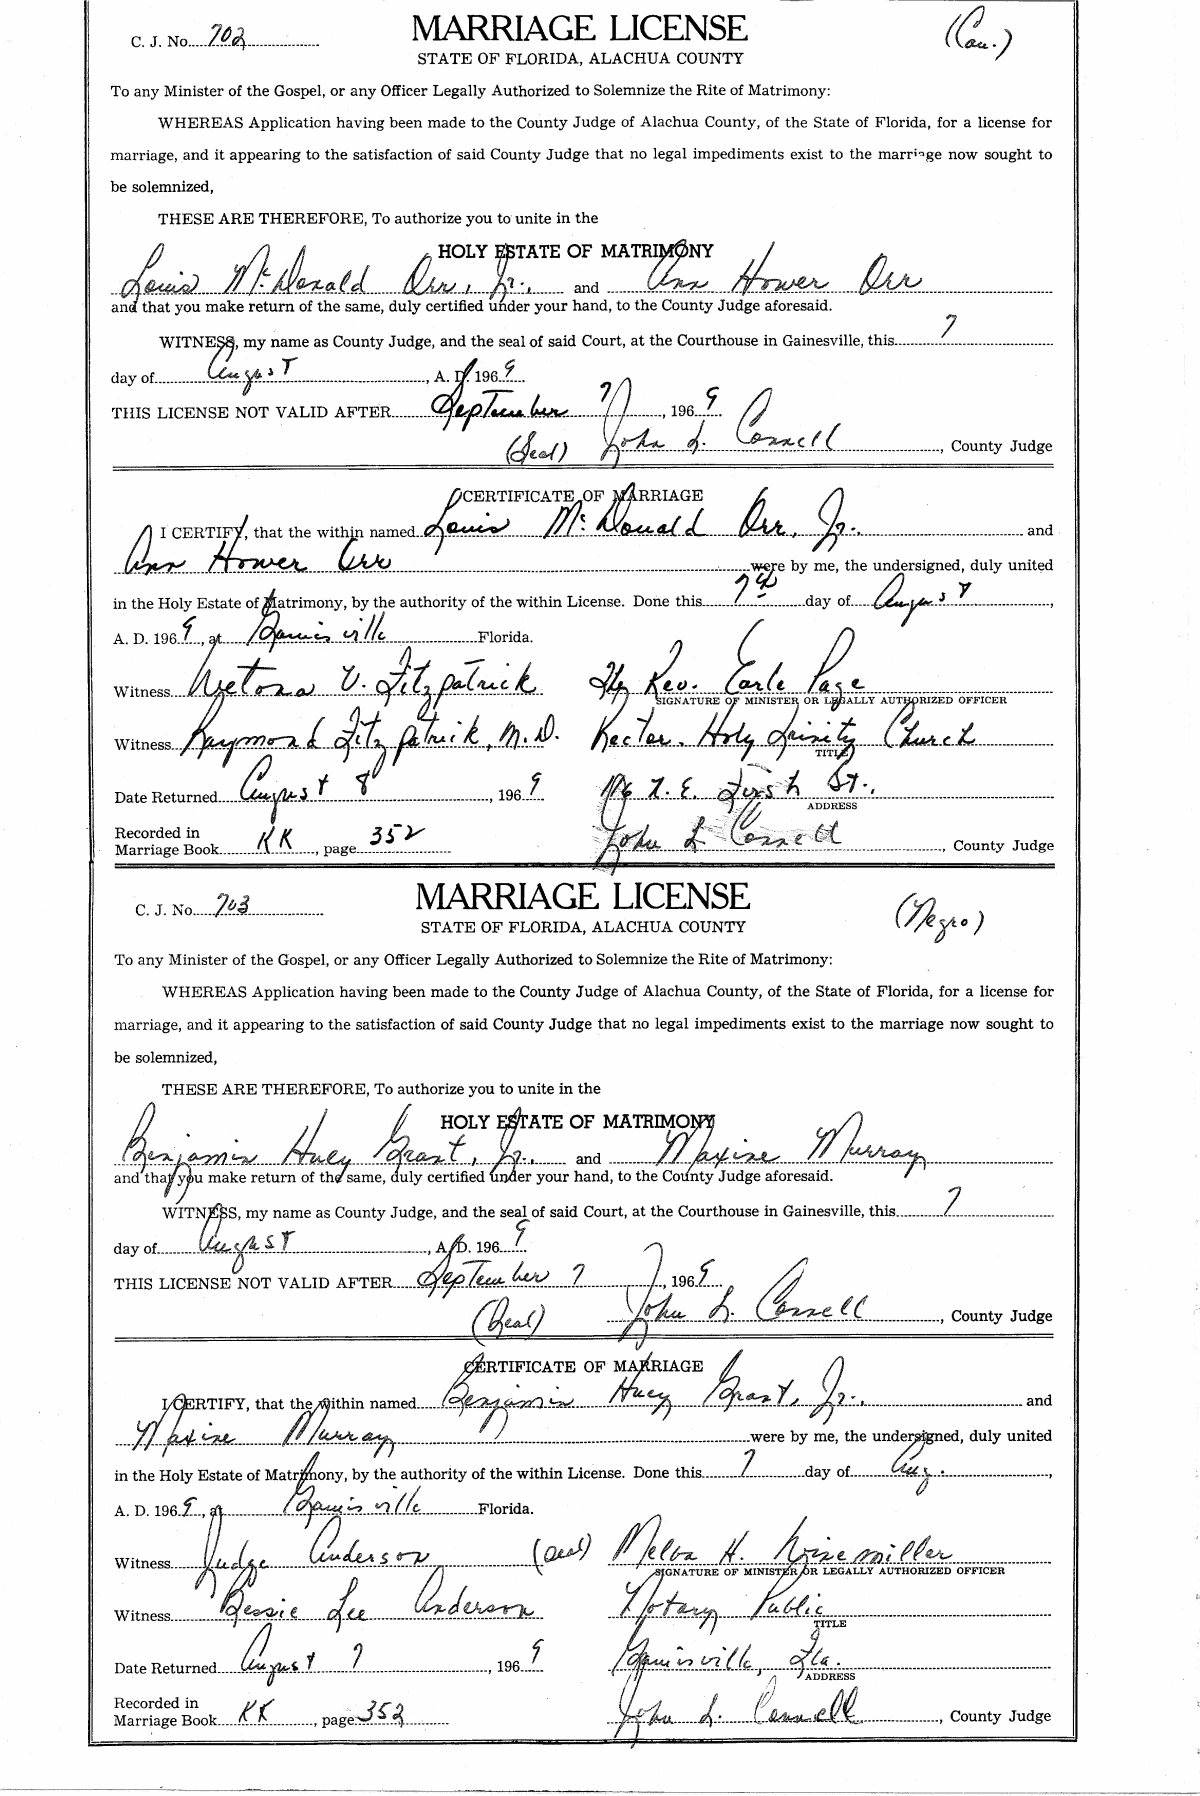 C. J. No. 702 MARRIAGE LICENSE (Cau.)
STATE OF FLORIDA, ALACHUA COUNTY
To any Minister of the Gospel, or any Officer Legally Authorized to Solemnize the Rite of Matrimony:
WHEREAS Application having been made to the County Judge of Alachua County, of the State of Florida, for a license for
marriage, and it appearing to the satisfaction of said County Judge that no legal impediments exist to the marriage now sought to
be solemnized,
THESE ARE THEREFORE, To authorize you to unite in the
HOLY ESTATE OF MATRIMONY
Louis McDonald Orr, Jr., and Ann Hower Orr
and that you make return of the same, duly certified under your hand, to the County Judge aforesaid.
WITNESS, my name as County Judge, and the seal of said Court, at the Courthouse in Gainesville, this 7
day of August, A. D. 1969
THIS LICENSE NOT VALID AFTER September 7, 1969
(Seal) John L. Connell, County Judge
CERTIFICATE OF MARRIAGE
I CERTIFY, that the within named Louis McDonald Orr, Jr., and
Ann Hower Orr were by me, the undersigned, duly united
in the Holy Estate of Matrimony, by the authority of the within License. Done this 7th day of August,
A. D. 1969, at Gainesville Florida.
Witness Wetona V. Fitzpatrick The Rev. Earle Page
SIGNATURE OF MINISTER OR LEGALLY AUTHORIZED OFFICER
Witness Raymond Fitzpatrick, M.D. Rector. Holy Trinity Church
TITLE
Date Returned August 8, 1969 116 N. E. First St.,
ADDRESS
Recorded in
Marriage Book KK, page 352 John L Connell, County Judge
C. J. No. 703 MARRIAGE LICENSE (Negro)
STATE OF FLORIDA, ALACHUA COUNTY
To any Minister of the Gospel, or any Officer Legally Authorized to Solemnize the Rite of Matrimony:
WHEREAS Application having been made to the County Judge of Alachua County, of the State of Florida, for a license for
marriage, and it appearing to the satisfaction of said County Judge that no legal impediments exist to the marriage now sought to
be solemnized,
THESE ARE THEREFORE, To authorize you to unite in the
HOLY ESTATE OF MATRIMONY
Benjamin Huey Grant, Jr., and Maxine Murray
and that you make return of the same, duly certified under your hand, to the County Judge aforesaid.
WITNESS, my name as County Judge, and the seal of said Court, at the Courthouse in Gainesville, this 7
day of August, A. D. 1969
THIS LICENSE NOT VALID AFTER September 7, 1969
(Seal) John L. Connell, County Judge
CERTIFICATE OF MARRIAGE
I CERTIFY, that the within named Benjamin Huey Grant, Jr., and
Maxine Murray were by me, the undersigned, duly united
in the Holy Estate of Matrimony, by the authority of the within License. Done this 7 day of Aug.,
A. D. 1969, at Gainesville Florida.
Witness Judge Anderson (Seal) Melba H. Ninemiller
SIGNATURE OF MINISTER OR LEGALLY AUTHORIZED OFFICER
Witness Bessie Lee Anderson Notary Public
TITLE
Date Returned August 7, 1969 Gainesville, Fla.
ADDRESS
Recorded in
Marriage Book KK, page 352 John L. Connell, County Judge